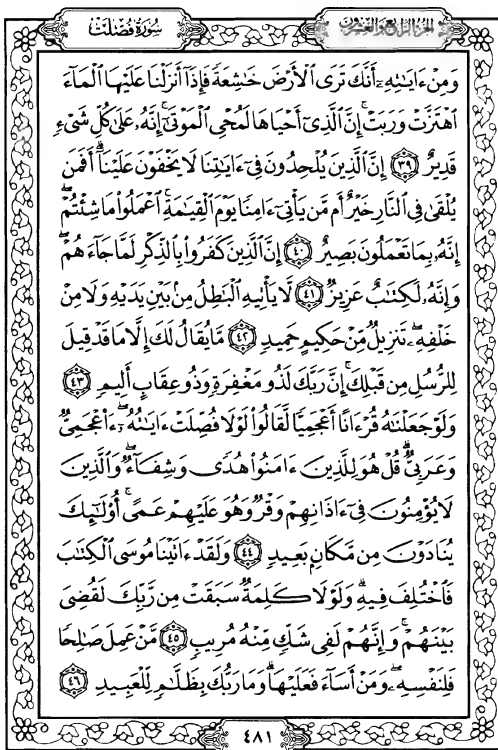 سُورَةُ فُصِّلَتْ
الجزء الرابع والعشرون
وَمِنْ ءَايَٰتِهِۦٓ أَنَّكَ تَرَى ٱلْأَرْضَ خَٰشِعَةً فَإِذَآ أَنزَلْنَا عَلَيْهَا ٱلْمَآءَ
ٱهْتَزَّتْ وَرَبَتْ ۚ إِنَّ ٱلَّذِىٓ أَحْيَاهَا لَمُحْىِ ٱلْمَوْتَىٰٓ ۚ إِنَّهُۥ عَلَىٰ كُلِّ شَىْءٍ
قَدِيرٌ ٣٩ إِنَّ ٱلَّذِينَ يُلْحِدُونَ فِىٓ ءَايَٰتِنَا لَا يَخْفَوْنَ عَلَيْنَآ ۗ أَفَمَن
يُلْقَىٰ فِى ٱلنَّارِ خَيْرٌ أَم مَّن يَأْتِىٓ ءَامِنًا يَوْمَ ٱلْقِيَٰمَةِ ۚ ٱعْمَلُوا۟ مَا شِئْتُمْ ۖ
إِنَّهُۥ بِمَا تَعْمَلُونَ بَصِيرٌ ٤٠ إِنَّ ٱلَّذِينَ كَفَرُوا۟ بِٱلذِّكْرِ لَمَّا جَآءَهُمْ ۖ
وَإِنَّهُۥ لَكِتَٰبٌ عَزِيزٌ ٤١ لَّا يَأْتِيهِ ٱلْبَٰطِلُ مِنۢ بَيْنِ يَدَيْهِ وَلَا مِنْ
خَلْفِهِۦ ۖ تَنزِيلٌ مِّنْ حَكِيمٍ حَمِيدٍ ٤٢ مَّا يُقَالُ لَكَ إِلَّا مَا قَدْ قِيلَ
لِلرُّسُلِ مِن قَبْلِكَ ۚ إِنَّ رَبَّكَ لَذُو مَغْفِرَةٍ وَذُو عِقَابٍ أَلِيمٍ ٤٣
وَلَوْ جَعَلْنَٰهُ قُرْءَانًا أَعْجَمِيًّا لَّقَالُوا۟ لَوْلَا فُصِّلَتْ ءَايَٰتُهُۥٓ ۖ ءَا۬عْجَمِىٌّ
وَعَرَبِىٌّ ۗ قُلْ هُوَ لِلَّذِينَ ءَامَنُوا۟ هُدًى وَشِفَآءٌ ۖ وَٱلَّذِينَ
لَا يُؤْمِنُونَ فِىٓ ءَاذَانِهِمْ وَقْرٌ وَهُوَ عَلَيْهِمْ عَمًى ۚ أُو۟لَٰٓئِكَ
يُنَادَوْنَ مِن مَّكَانٍۭ بَعِيدٍ ٤٤ وَلَقَدْ ءَاتَيْنَا مُوسَى ٱلْكِتَٰبَ
فَٱخْتُلِفَ فِيهِ ۗ وَلَوْلَا كَلِمَةٌ سَبَقَتْ مِن رَّبِّكَ لَقُضِىَ
بَيْنَهُمْ ۚ وَإِنَّهُمْ لَفِى شَكٍّ مِّنْهُ مُرِيبٍ ٤٥ مَّنْ عَمِلَ صَٰلِحًا
فَلِنَفْسِهِۦ ۖ وَمَنْ أَسَآءَ فَعَلَيْهَا ۗ وَمَا رَبُّكَ بِظَلَّٰمٍ لِّلْعَبِيدِ ٤٦
٤٨١